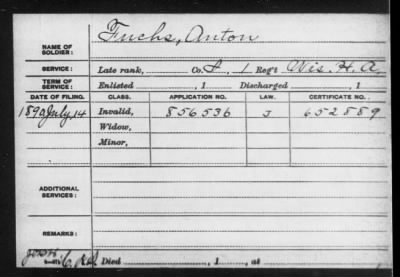 Fuchs, Anton
NAME OF SOLDIER:
SERVICE: Late rank, Co. L, 1 Reg't Wis. H. A.
TERM OF SERVICE: Enlisted , 1 Discharged , 1
DATE OF FILING. CLASS. APPLICATION NO. LAW. CERTIFICATE NO.
1890 July 14 Invalid, 856536 J 652889
Widow,
Minor,
ADDITIONAL SERVICES:
REMARKS:
Died , 1 , at